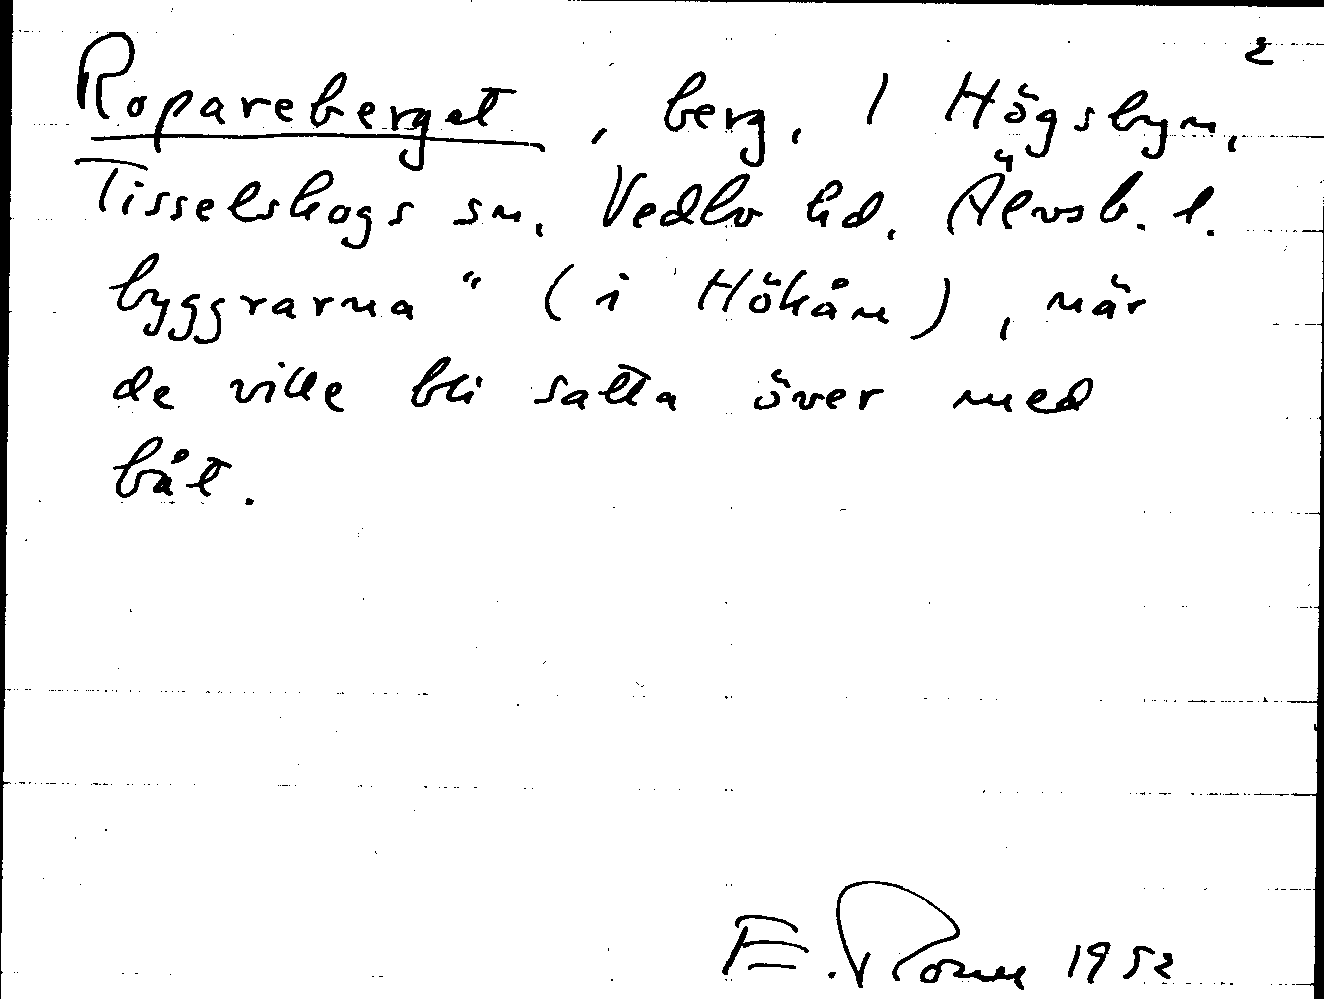 2
Ropareberget, berg, / Högsbyn,
Tisselskogs sn, Vedbo hd, Älvsb. l.
byggrarna" (i Hökån), när
de ville bli satta över med
båt.
E. 1952